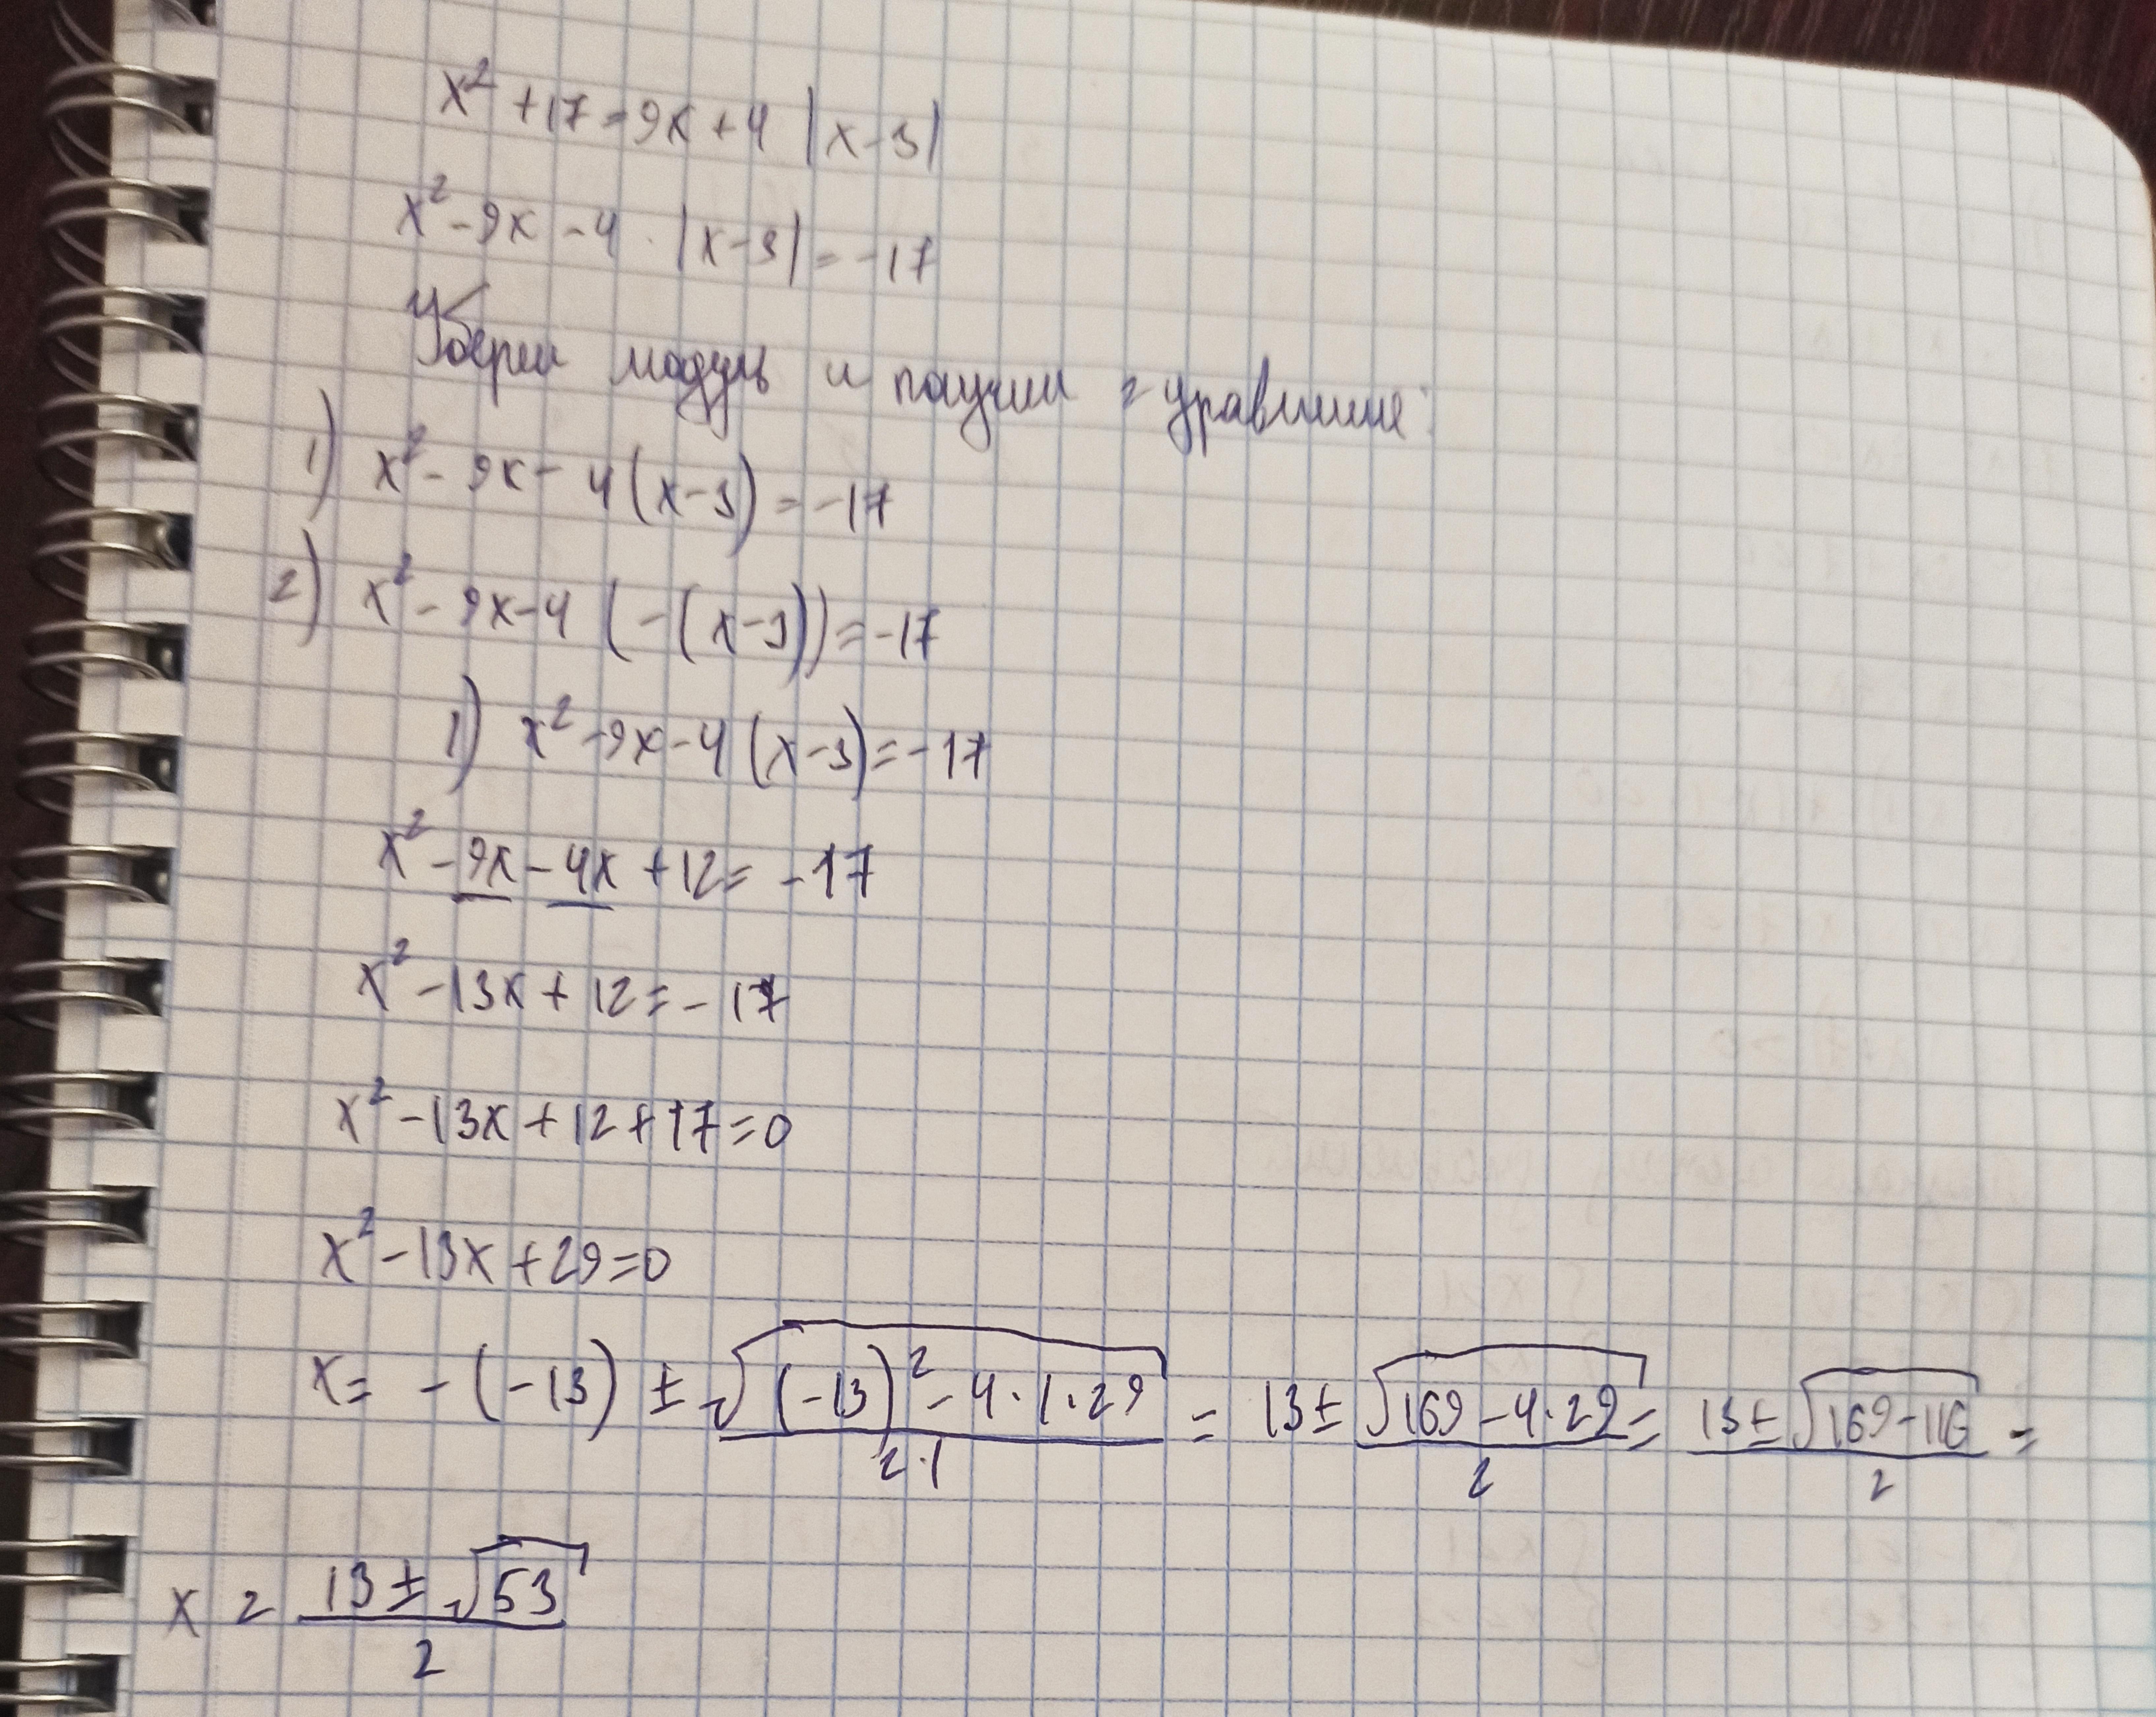 x² + 17 = 9x + 4 |x - 3|
x² - 9x - 4 · |x - 3| = -17
Уберем модуль и получим 2 уравнение:
1) x² - 9x - 4 (x - 3) = -17
2) x² - 9x - 4 (-(x - 3)) = -17
1) x² - 9x - 4 (x - 3) = -17
x² - 9x - 4x + 12 = -17
x² - 13x + 12 = -17
x² - 13x + 12 + 17 = 0
x² - 13x + 29 = 0
x = -(-13) ± √((-13)² - 4 · 1 · 29) / 2·1 = 13 ± √(169 - 4 · 29) / 2 = 13 ± √(169 - 116) / 2 =
x = 13 ± √53 / 2